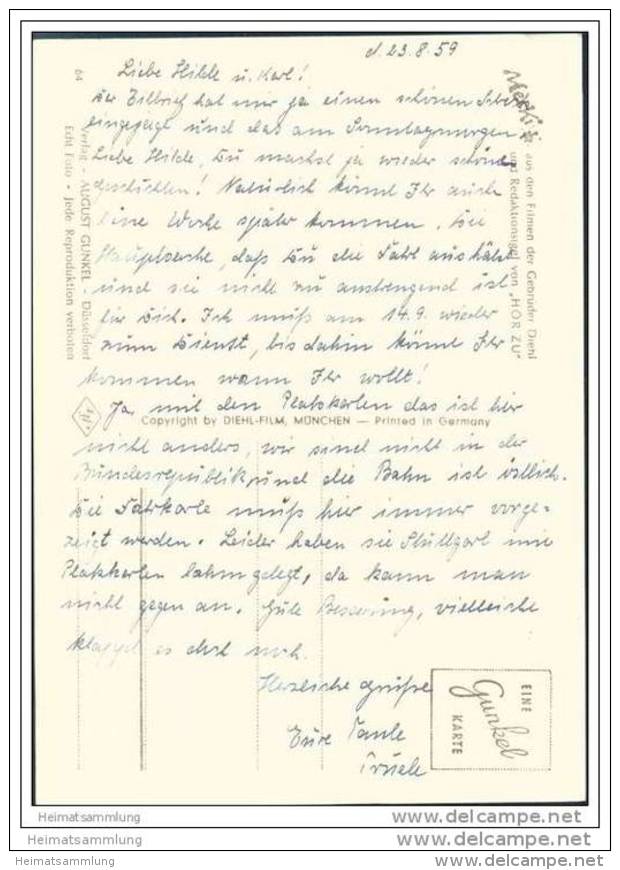 d. 23.8.59
Liebe Hilde u. Karl!
Der Eilbrief hat mir ja einen schönen
eingejagt und das am Sonntagmorgen.
Liebe Hilde, Du machst ja wieder schöne
Geschichten! Natürlich könnt Ihr auch
eine Woche später kommen. Die
Hauptsache, daß Du die Fahrt aushältst
und sie nicht zu anstrengend ist
für Dich. Ich muß am 14.9. wieder
zum Dienst, bis dahin könnt Ihr
kommen wann Ihr wollt!
Ja, mit den Platzkarten das ist hier
nicht anders, wir sind nicht in der
Bundesrepublik, und die Bahn ist östlich.
Die Fahrkarte muß hier immer vorge-
zeigt werden. Leider haben sie Stuttgart mit
Platzkarten lahmgelegt, da kann man
nicht gegen an. Gute Besserung, vielleicht
klappt es doch noch.
Herzliche Grüße
Eure Tante
Trudel
Mecki
aus den Filmen der Gebrüder Diehl
und Redaktionsigel von „HÖR ZU"
64
Verlag - AUGUST GUNKEL, Düsseldorf
Echt Foto - Jede Reproduktion verboten
Copyright by DIEHL-FILM, MÜNCHEN — Printed in Germany
EINE
Gunkel
KARTE
Heimatsammlung
www.oldthing.de
Heimatsammlung
www.oldthing.de
Heimatsammlung
www.oldthing.de